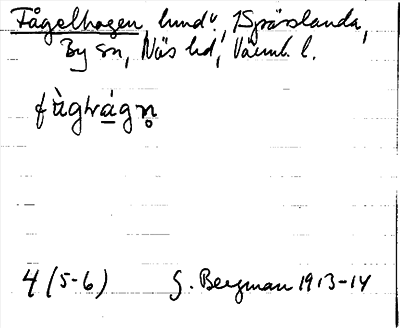 Fågelhagen lund u. 1 Sprässlanda,
By sn, Näs hd, Värml. l.
fùghágn̥
4 (5-6) G. Bergman 1913-14